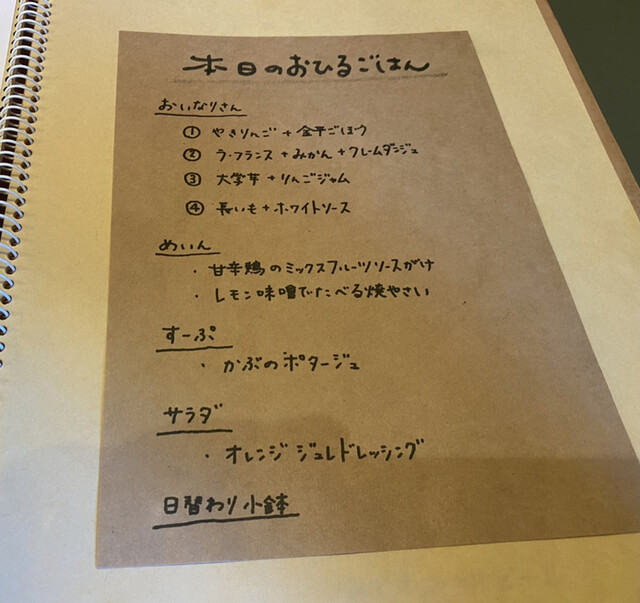 本日のおひるごはん
おいなりさん
① やきりんご + 金平ごぼう
② ラ・フランス + みかん + クレームダンジュ
③ 大学芋 + りんごジャム
④ 長いも + ホワイトソース
めいん
・甘辛鶏のミックスフルーツソースがけ
・レモン味噌でたべる焼やさい
すーぷ
・かぶのポタージュ
サラダ
・オレンジジュレドレッシング
日替わり小鉢